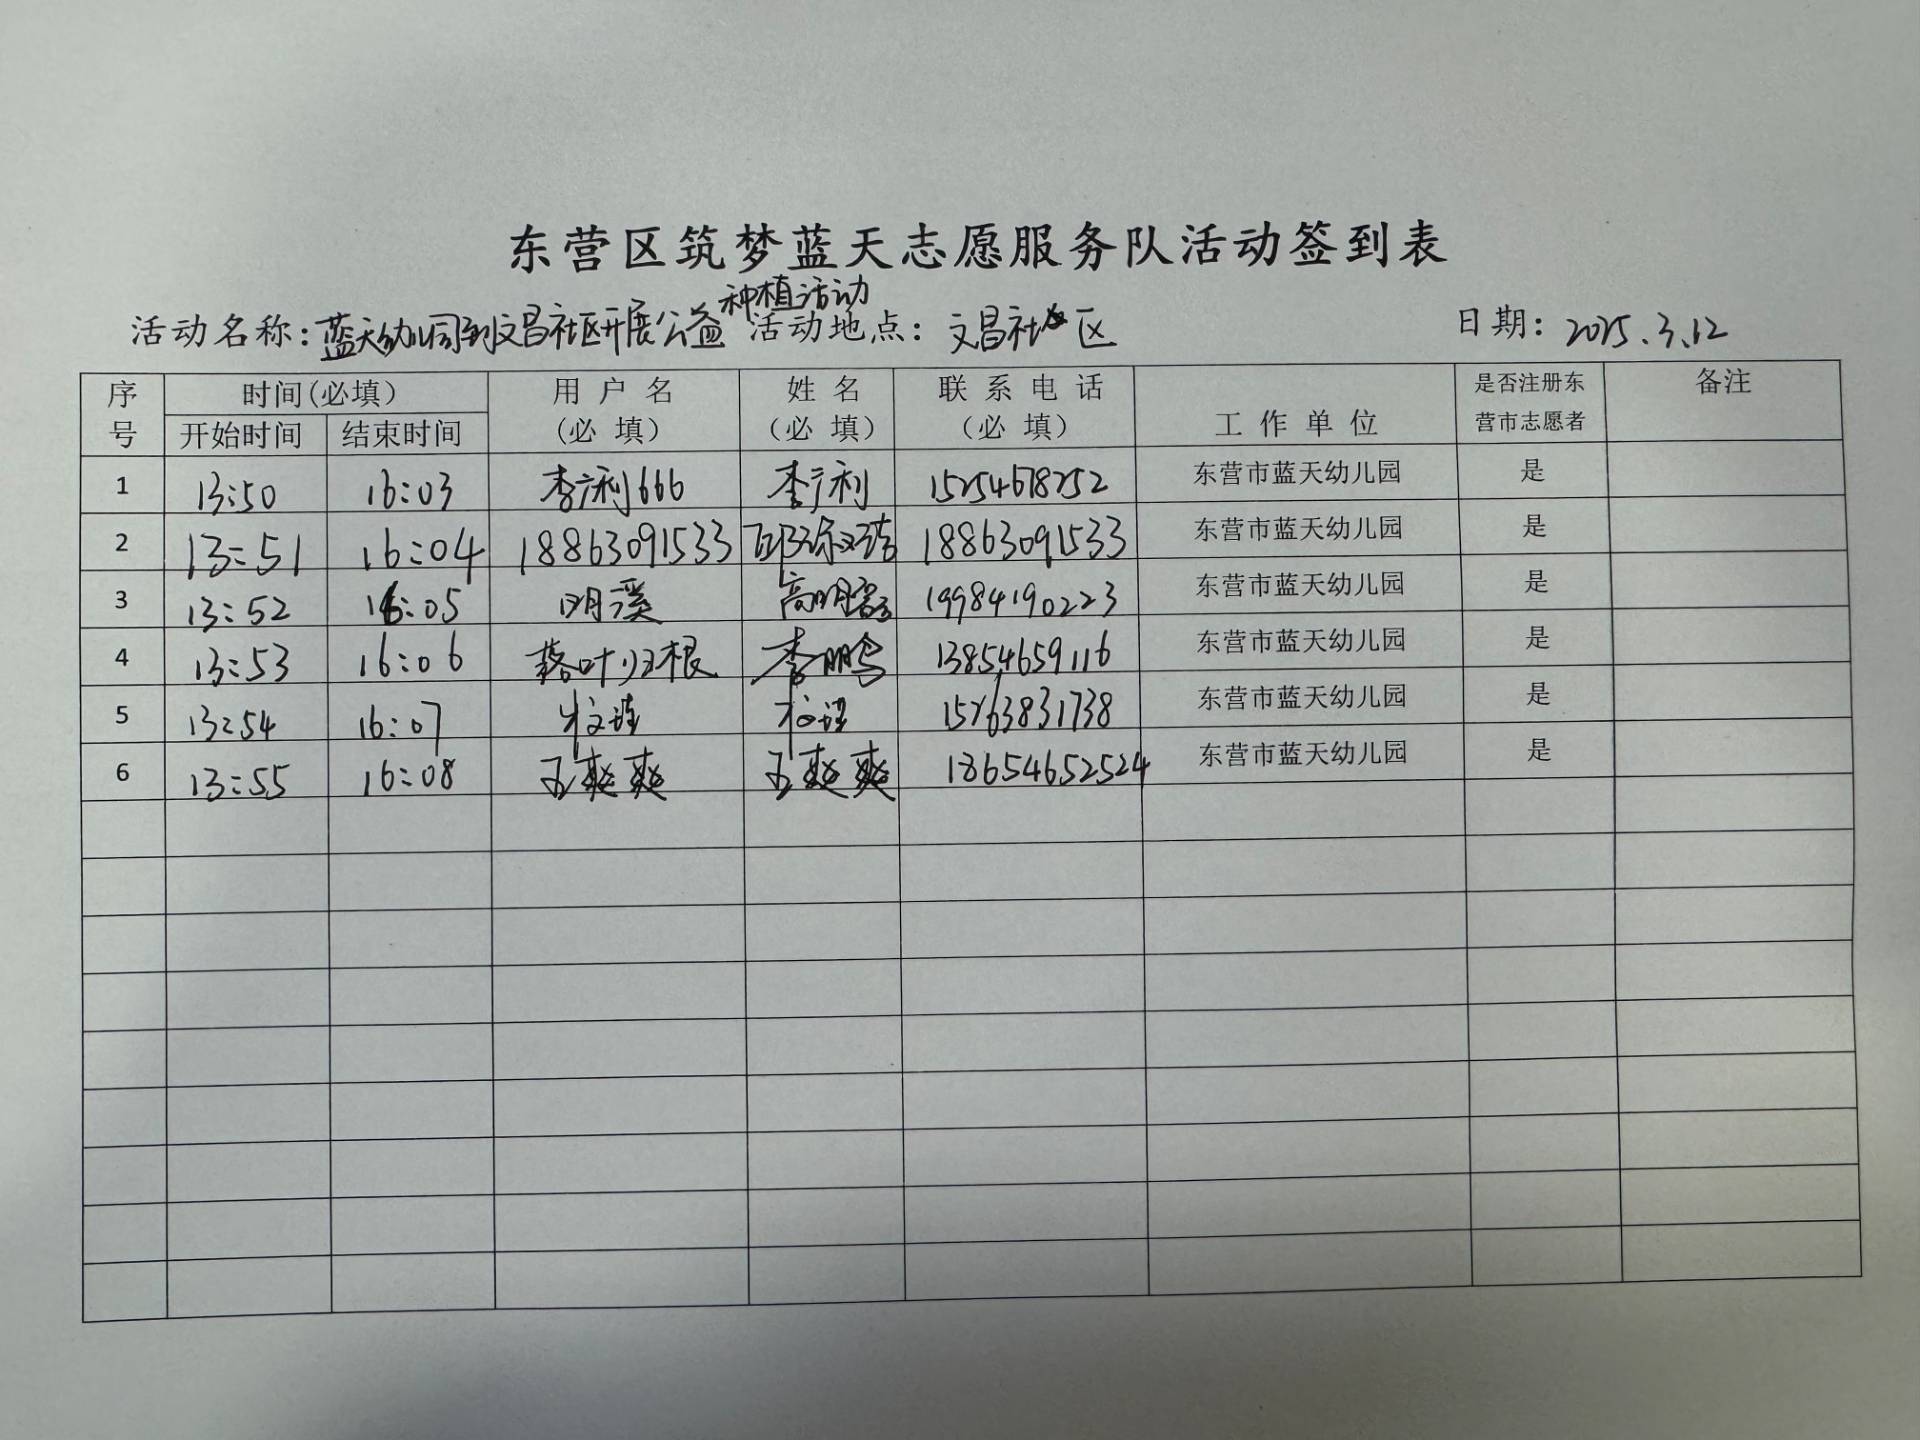 东营区筑梦蓝天志愿服务队活动签到表
种植活动
活动名称：蓝天幼儿园到文昌社区开展公益 活动地点：文昌社区 日期：2025.3.12
序号 时间(必填) 用户名(必填) 姓名(必填) 联系电话(必填) 工作单位 是否注册东营市志愿者 备注
开始时间 结束时间
1 13:50 16:03 李广利666 李广利 15254678252 东营市蓝天幼儿园 是
2 13:51 16:04 18863091533 18863091533 东营市蓝天幼儿园 是
3 13:52 16:05 明溪 19984190223 东营市蓝天幼儿园 是
4 13:53 16:06 落叶归根 李鹏 13854659116 东营市蓝天幼儿园 是
5 13:54 16:07 15263831738 东营市蓝天幼儿园 是
6 13:55 16:08 王爽爽 王爽爽 18654652524 东营市蓝天幼儿园 是